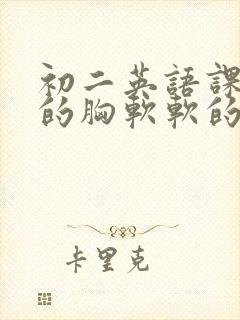 初二英語課
的胸軟軟的
卡里克